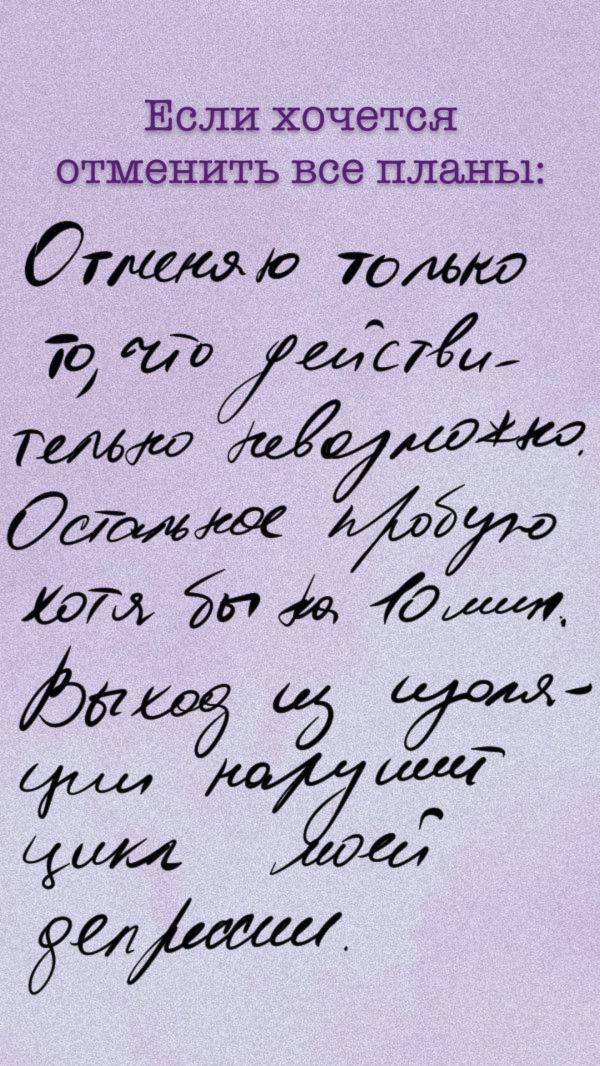 Если хочется
отменить все планы:
Отменяю только
то, что действи-
тельно невозможно.
Остальное пробую
хотя бы на 10 мин.
Выход из изоля-
ции нарушит
цикл моей
депрессии.